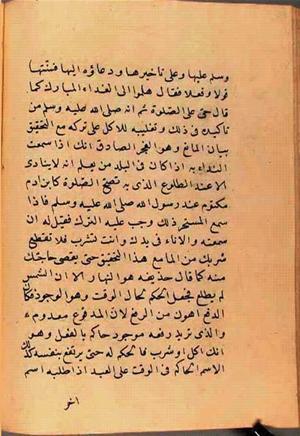 وسلم عليها وعلى تاخيرها ودعاؤه اليها فسنّتها
قولا وفعلا فقال هلموا الى الغداء المبارك كما
قال حى على الصّلوة ثم انه صلى الله عليه وسلم من
تاكيده فى ذلك وتغليبه للاكل على تركه مع التحقيق
ببيان المانع وهو الفجر الصادق انك اذا سمعت
النداء به اذا كان فى البلد من يعلم انه لا ينادى
الا عند الطلوع الذى به تصح الصّلوة كابن ام
مكتوم عند رسول الله صلى الله عليه وسلم فاذا
سمع المتسحر ذلك وجب عليه الترك فقيل له ان
سمعته والاناء فى يدك وانت تشرب فلا تقطعن
شربك من المانع مع هذا التحقيق حتى يقضى حاجتك
منه كما قال حذيفه هو النهار الا ان الشمس
لم يطلع فجعل الحكم لحال الوقت وهو الوجود فكان
الدفع اهون من الرفع لان المدفوع معدوم
والذى تريد رفعه موجود حاكم بالفعل وهو
انك اكل او شرب فالحكم له حتى يرتفع بنفسه كذلك
الاسم الحاكم فى الوقت على العبد اذا طلبه اسم
اخر